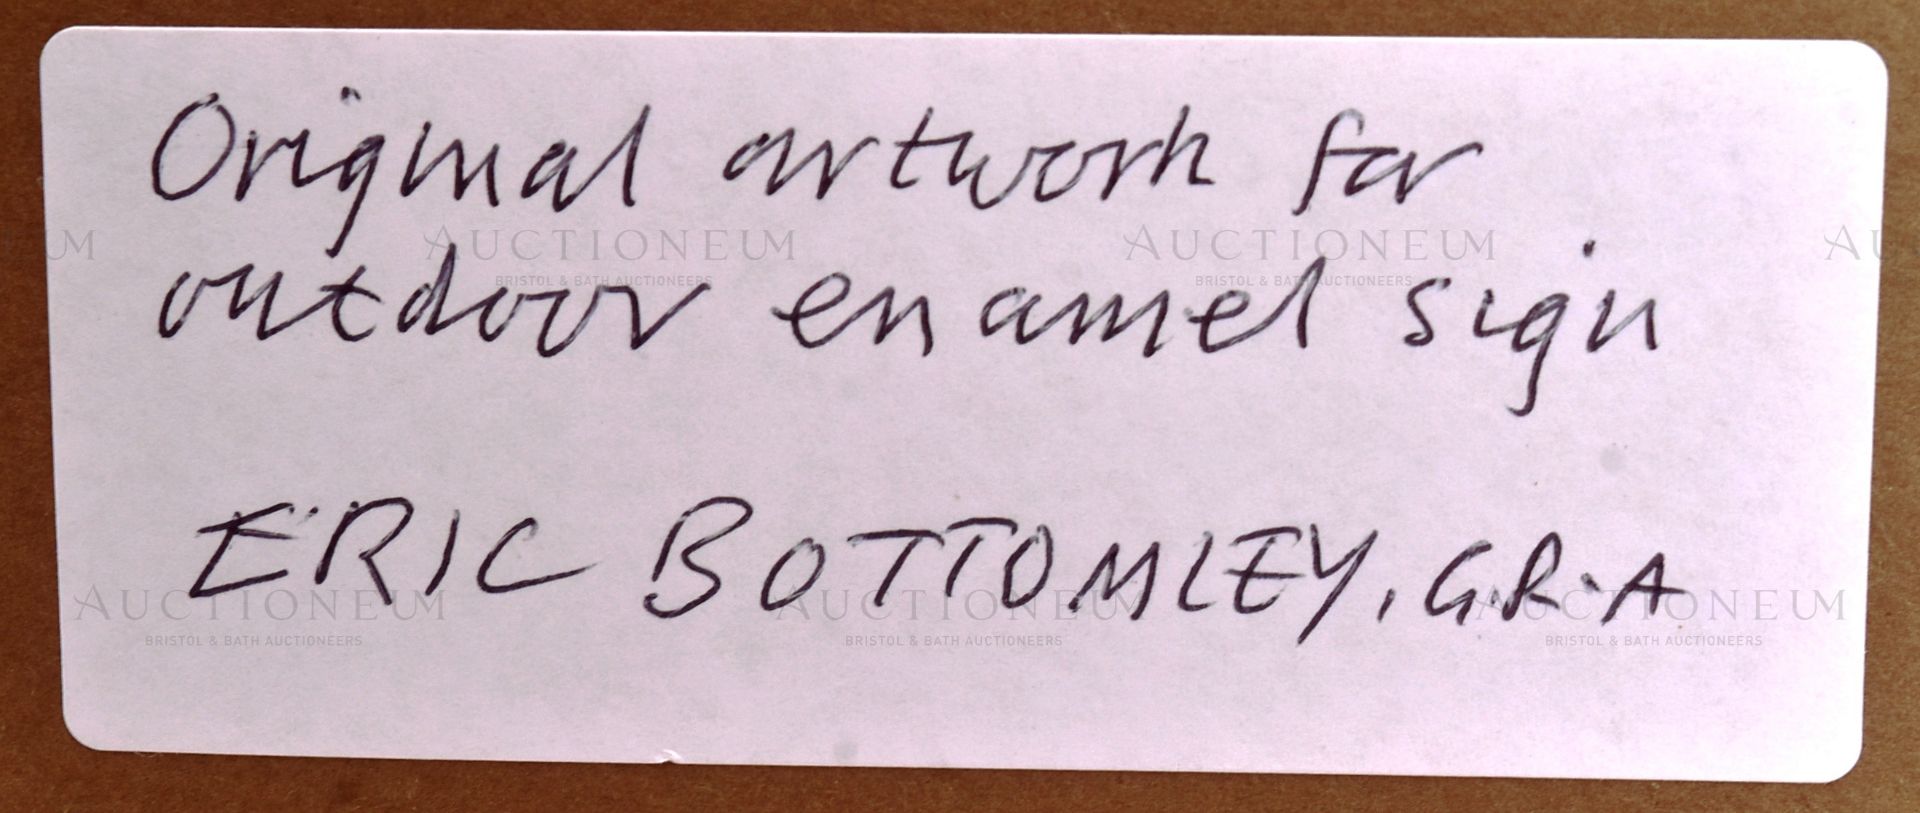 Original artwork for
UM AUCTIONEUM AUCTIONEUM AU
BRISTOL & BATH AUCTIONEERS BRISTOL & BATH AUCTIONEERS
outdoor enamel sign
ERIC BOTTOMLEY, G.R.A
AUCTIONEUM AUCTIONEUM AUCTIONEUM
BRISTOL & BATH AUCTIONEERS BRISTOL & BATH AUCTIONEERS BRISTOL & BATH AUCTIONEERS